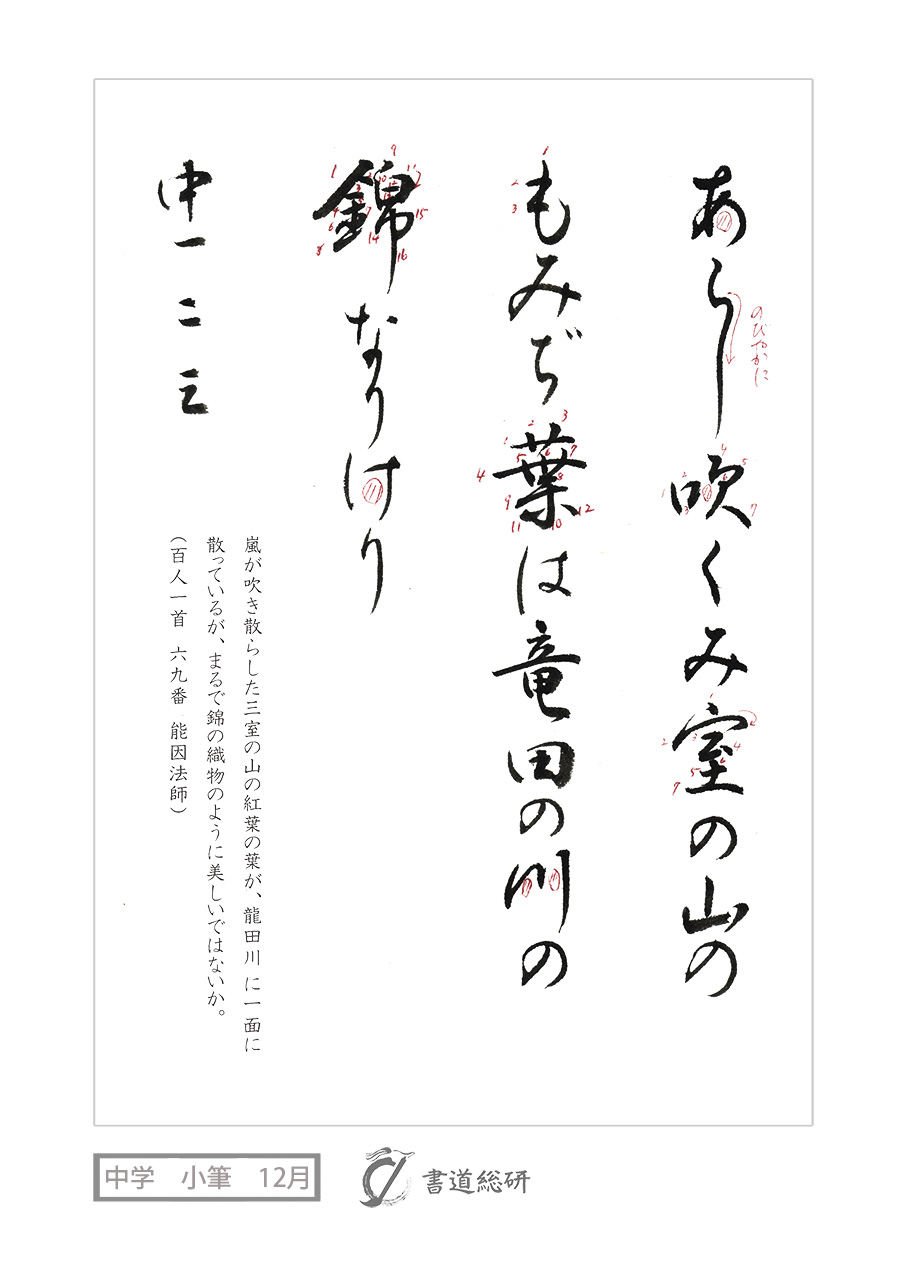 あらし吹くみ室の山の
のびやかに
もみぢ葉は竜田の川の
錦なりけり
中一 二 三
嵐が吹き散らした三室の山の紅葉の葉が、龍田川に一面に
散っているが、まるで錦の織物のように美しいではないか。
(百人一首 六九番 能因法師)
中学 小筆 12月
書道総研